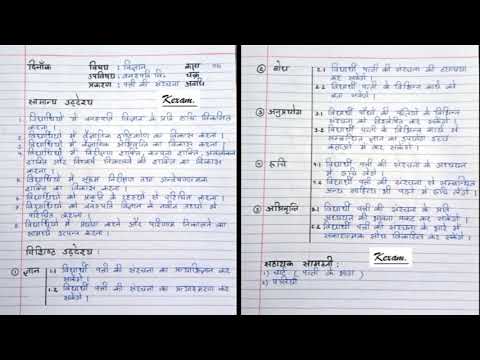 दिनाँक विषय : विज्ञान कक्षा
उपविषय : वनस्पति वि. चक्र
प्रकरण : पत्ती की संरचना अवधि
सामान्य उद्देश्य Kexam.
1. विद्यार्थियों में वनस्पति विज्ञान के प्रति रुचि विकसित
करना ।
2. विद्यार्थियों में वैज्ञानिक दृष्टिकोण का विकास करना ।
3. विद्यार्थियों में वैज्ञानिक अभिवृत्ति का विकास करना ।
4. विद्यार्थियों में निरीक्षण शक्ति कल्पना शक्ति अवलोकन
शक्ति और निष्कर्ष निकालने की शक्ति का विकास
करना ।
5. विद्यार्थियों में सूक्ष्म निरीक्षण तथा अन्वेषणात्मक
शक्ति का विकास करना ।
6. विद्यार्थियों को प्रकृति के रहस्यों से परिचित करना ।
7. विद्यार्थियों को वनस्पति विज्ञान के नवीन तथ्यों से
परिचित करना ।
8. विद्यार्थियों में प्रयोग करने और परिणाम निकालने का
सामर्थ्य उत्पन्न करना ।
विशिष्ट उद्देश्य
① ज्ञान 1.1 विद्यार्थी पत्ती की संरचना का प्रत्याभिज्ञान कर
सकेंगे ।
1.2 विद्यार्थी पत्ती की संरचना का प्रत्यास्मरण कर
सकेंगे ।
② बोध 2.1 विद्यार्थी पत्ती की संरचना की व्याख्या
कर सकेंगे ।
2.2 विद्यार्थी पत्ती के विभिन्न कार्य को
बता सकेंगे ।
③ अनुप्रयोग 3.1 विद्यार्थी पौधों की पत्तियों के विभिन्न
संरचना को विश्लेषित कर सकेंगे ।
3.2 विद्यार्थी पत्ती के विभिन्न कार्य से
सम्बन्धित ज्ञान का उपयोग उच्च
कक्षाओं में कर सकेंगे ।
④ रुचि 4.1 विद्यार्थी पत्ती की संरचना के अध्ययन
में रुचि लेंगे ।
4.2 विद्यार्थी पत्ती की संरचना से सम्बन्धित
साहित्य भी पढ़ने में रुचि लेंगे ।
⑤ अभिवृत्ति 5.1 विद्यार्थी पत्ती की संरचना के प्रति
अध्ययन की भावना प्रकट कर सकेंगे ।
5.2 विद्यार्थी पत्ती की संरचना के बारे में
सकारात्मक सोच विकसित कर सकेंगे ।
सहायक सामग्री : Kexam.
1) चार्ट ( पत्ती के भाग )
2) पत्तियाँ